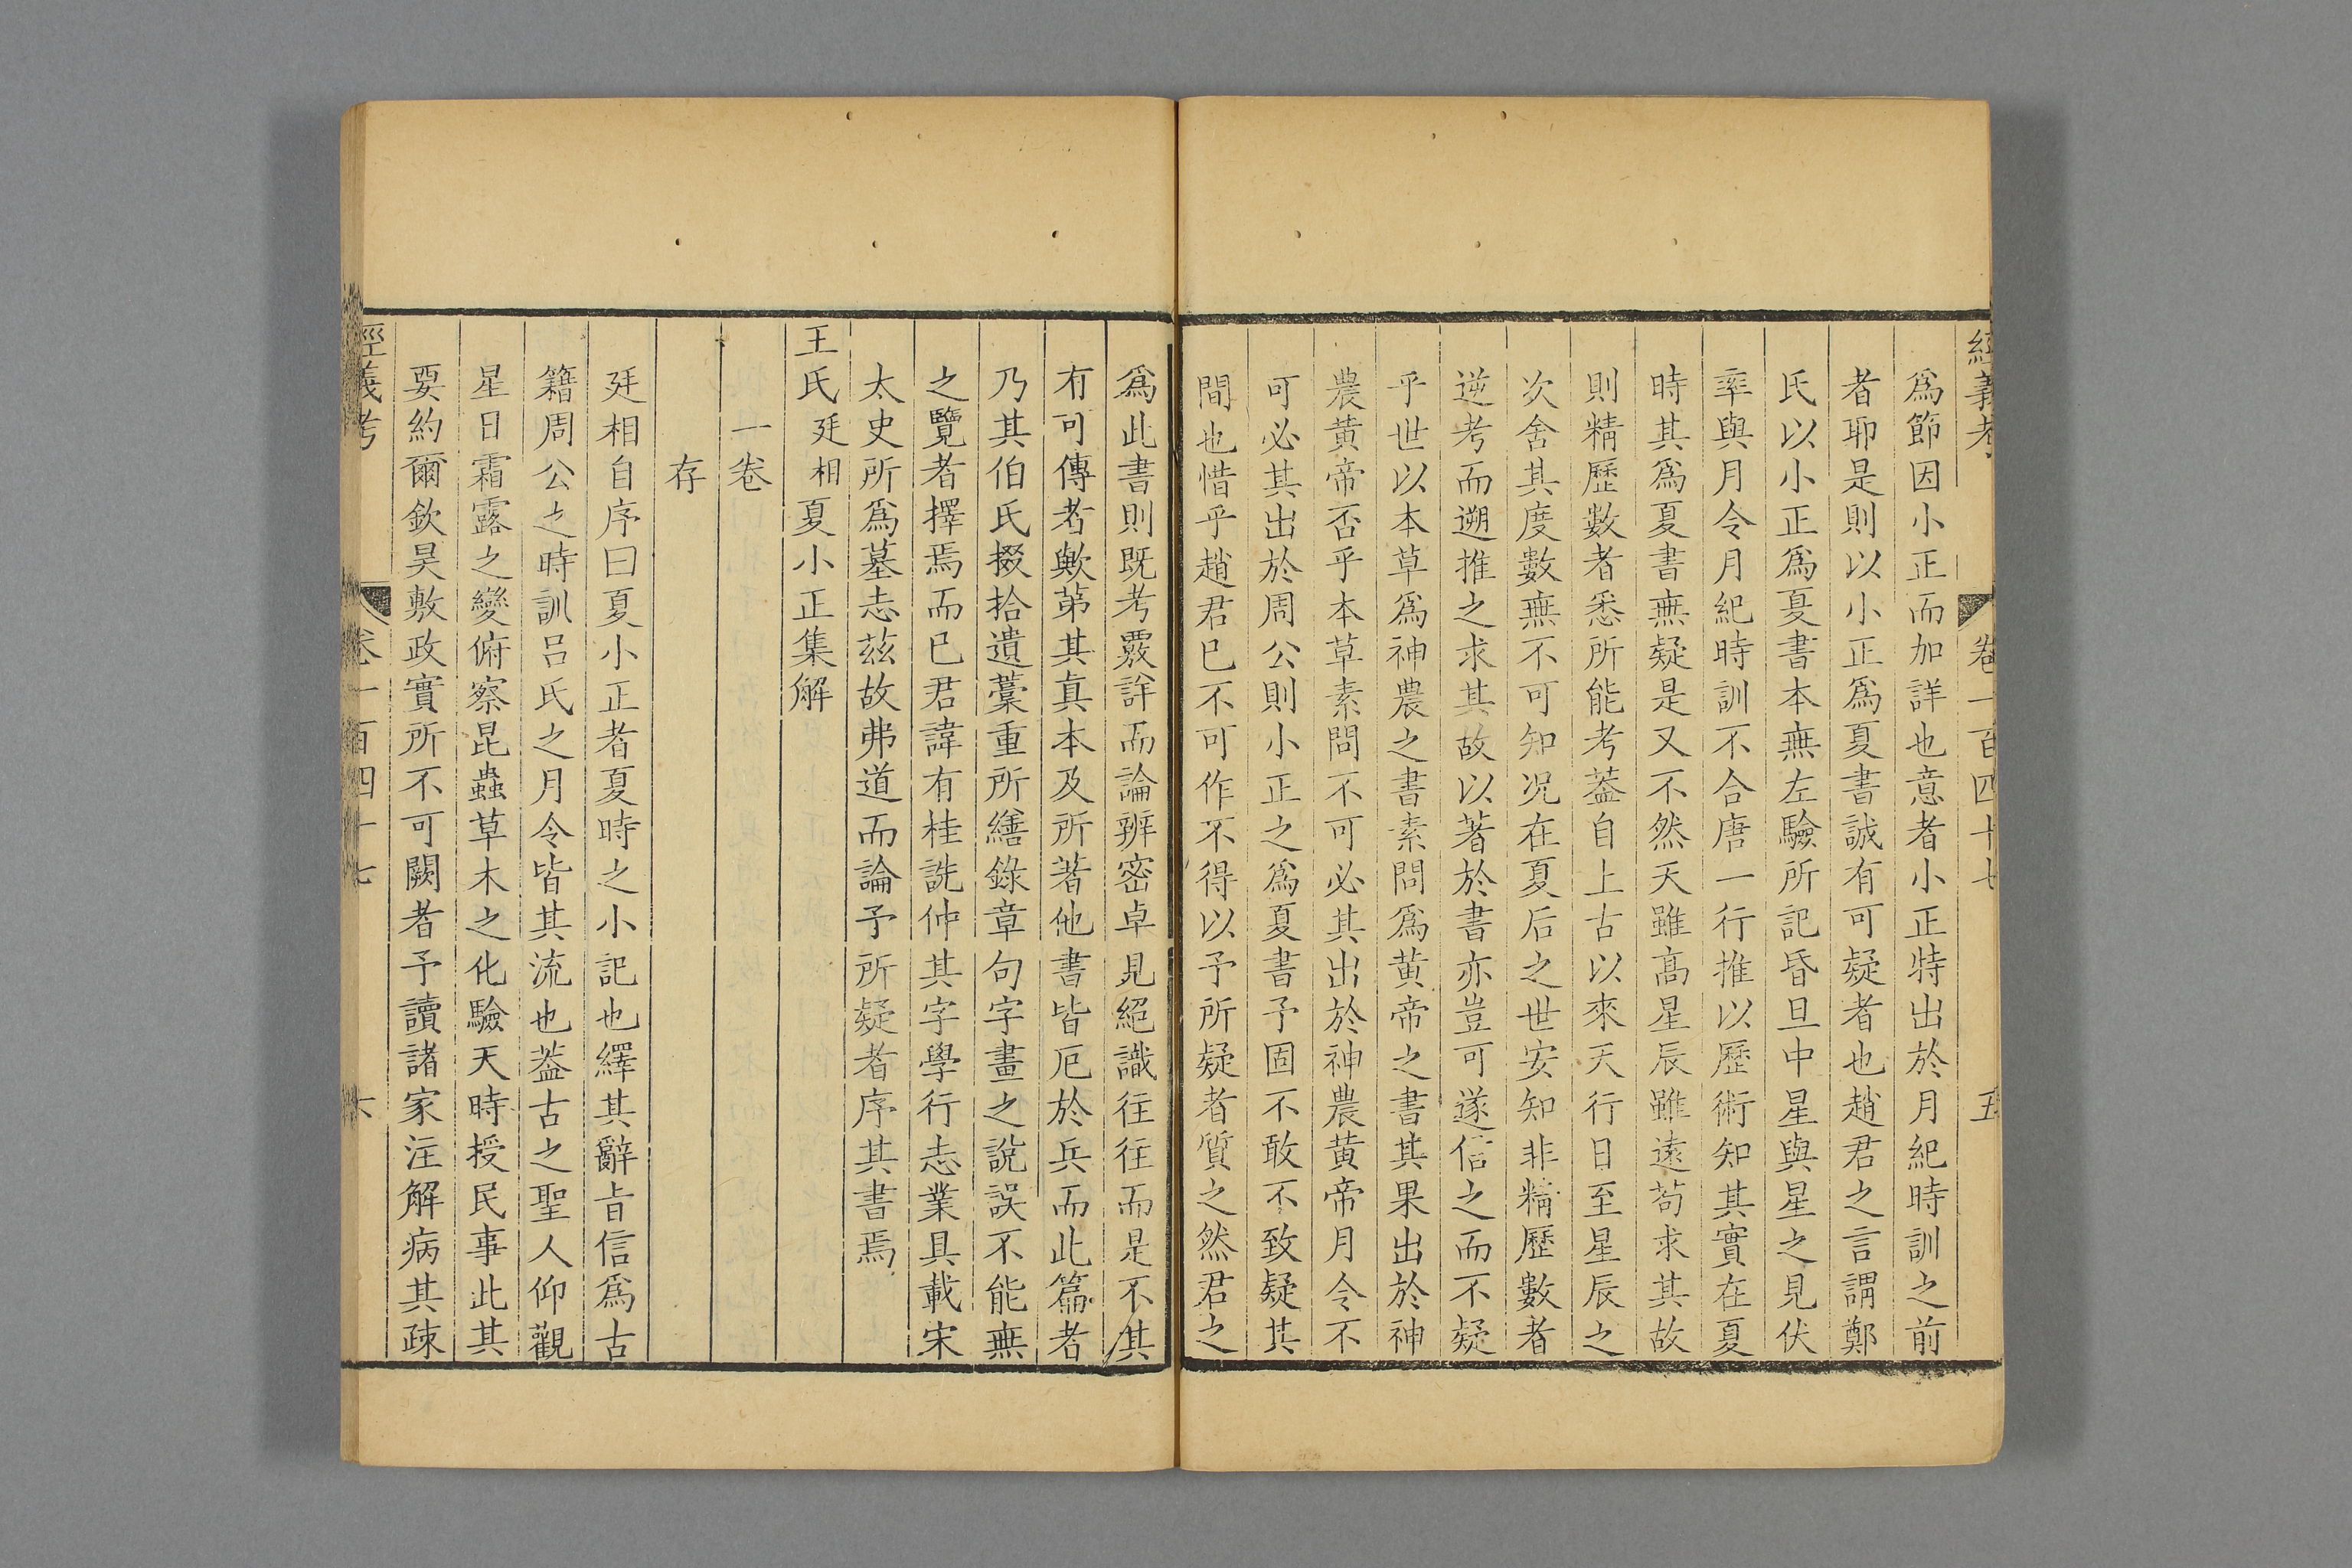 經義考 卷一百四十七 五
爲節因小正而加詳也意者小正特出於月紀時訓之前
者耶是則以小正爲夏書誠有可疑者也趙君之言謂鄭
氏以小正爲夏書本無左驗所記昏旦中星與星之見伏
率與月令月紀時訓不合唐一行推以歷術知其實在夏
時其爲夏書無疑是又不然天雖髙星辰雖遠茍求其故
則精歷數者悉所能考葢自上古以來天行日至星辰之
次舍其度數無不可知况在夏后之世安知非精歷數者
逆考而遡推之求其故以著於書亦豈可遂信之而不疑
乎世以本草爲神農之書素問爲黄帝之書其果出於神
農黄帝否乎本草素問不可必其出於神農黄帝月令不
可必其出於周公則小正之爲夏書予固不敢不致疑其
間也惜乎趙君已不可作不得以予所疑者質之然君之
爲此書則既考覈詳而論辨密卓見絕識往往而是不其
有可傳者歟第其真本及所著他書皆厄於兵而此篇者
乃其伯氏掇拾遺藁重所繕錄章句字畫之說誤不能無
之覽者擇焉而已君諱有桂詵仲其字學行志業具載宋
太史所爲墓志茲故弗道而論予所疑者序其書焉
王氏廷相夏小正集解
一卷
存
廷相自序曰夏小正者夏時之小記也繹其辭旨信爲古
籍周公之時訓呂氏之月令皆其流也葢古之聖人仰觀
星日霜露之變俯察昆蟲草木之化驗天時授民事此其
要約爾欽昊敷政實所不可闕者予讀諸家注解病其疎
經義考 卷一百四十七 六